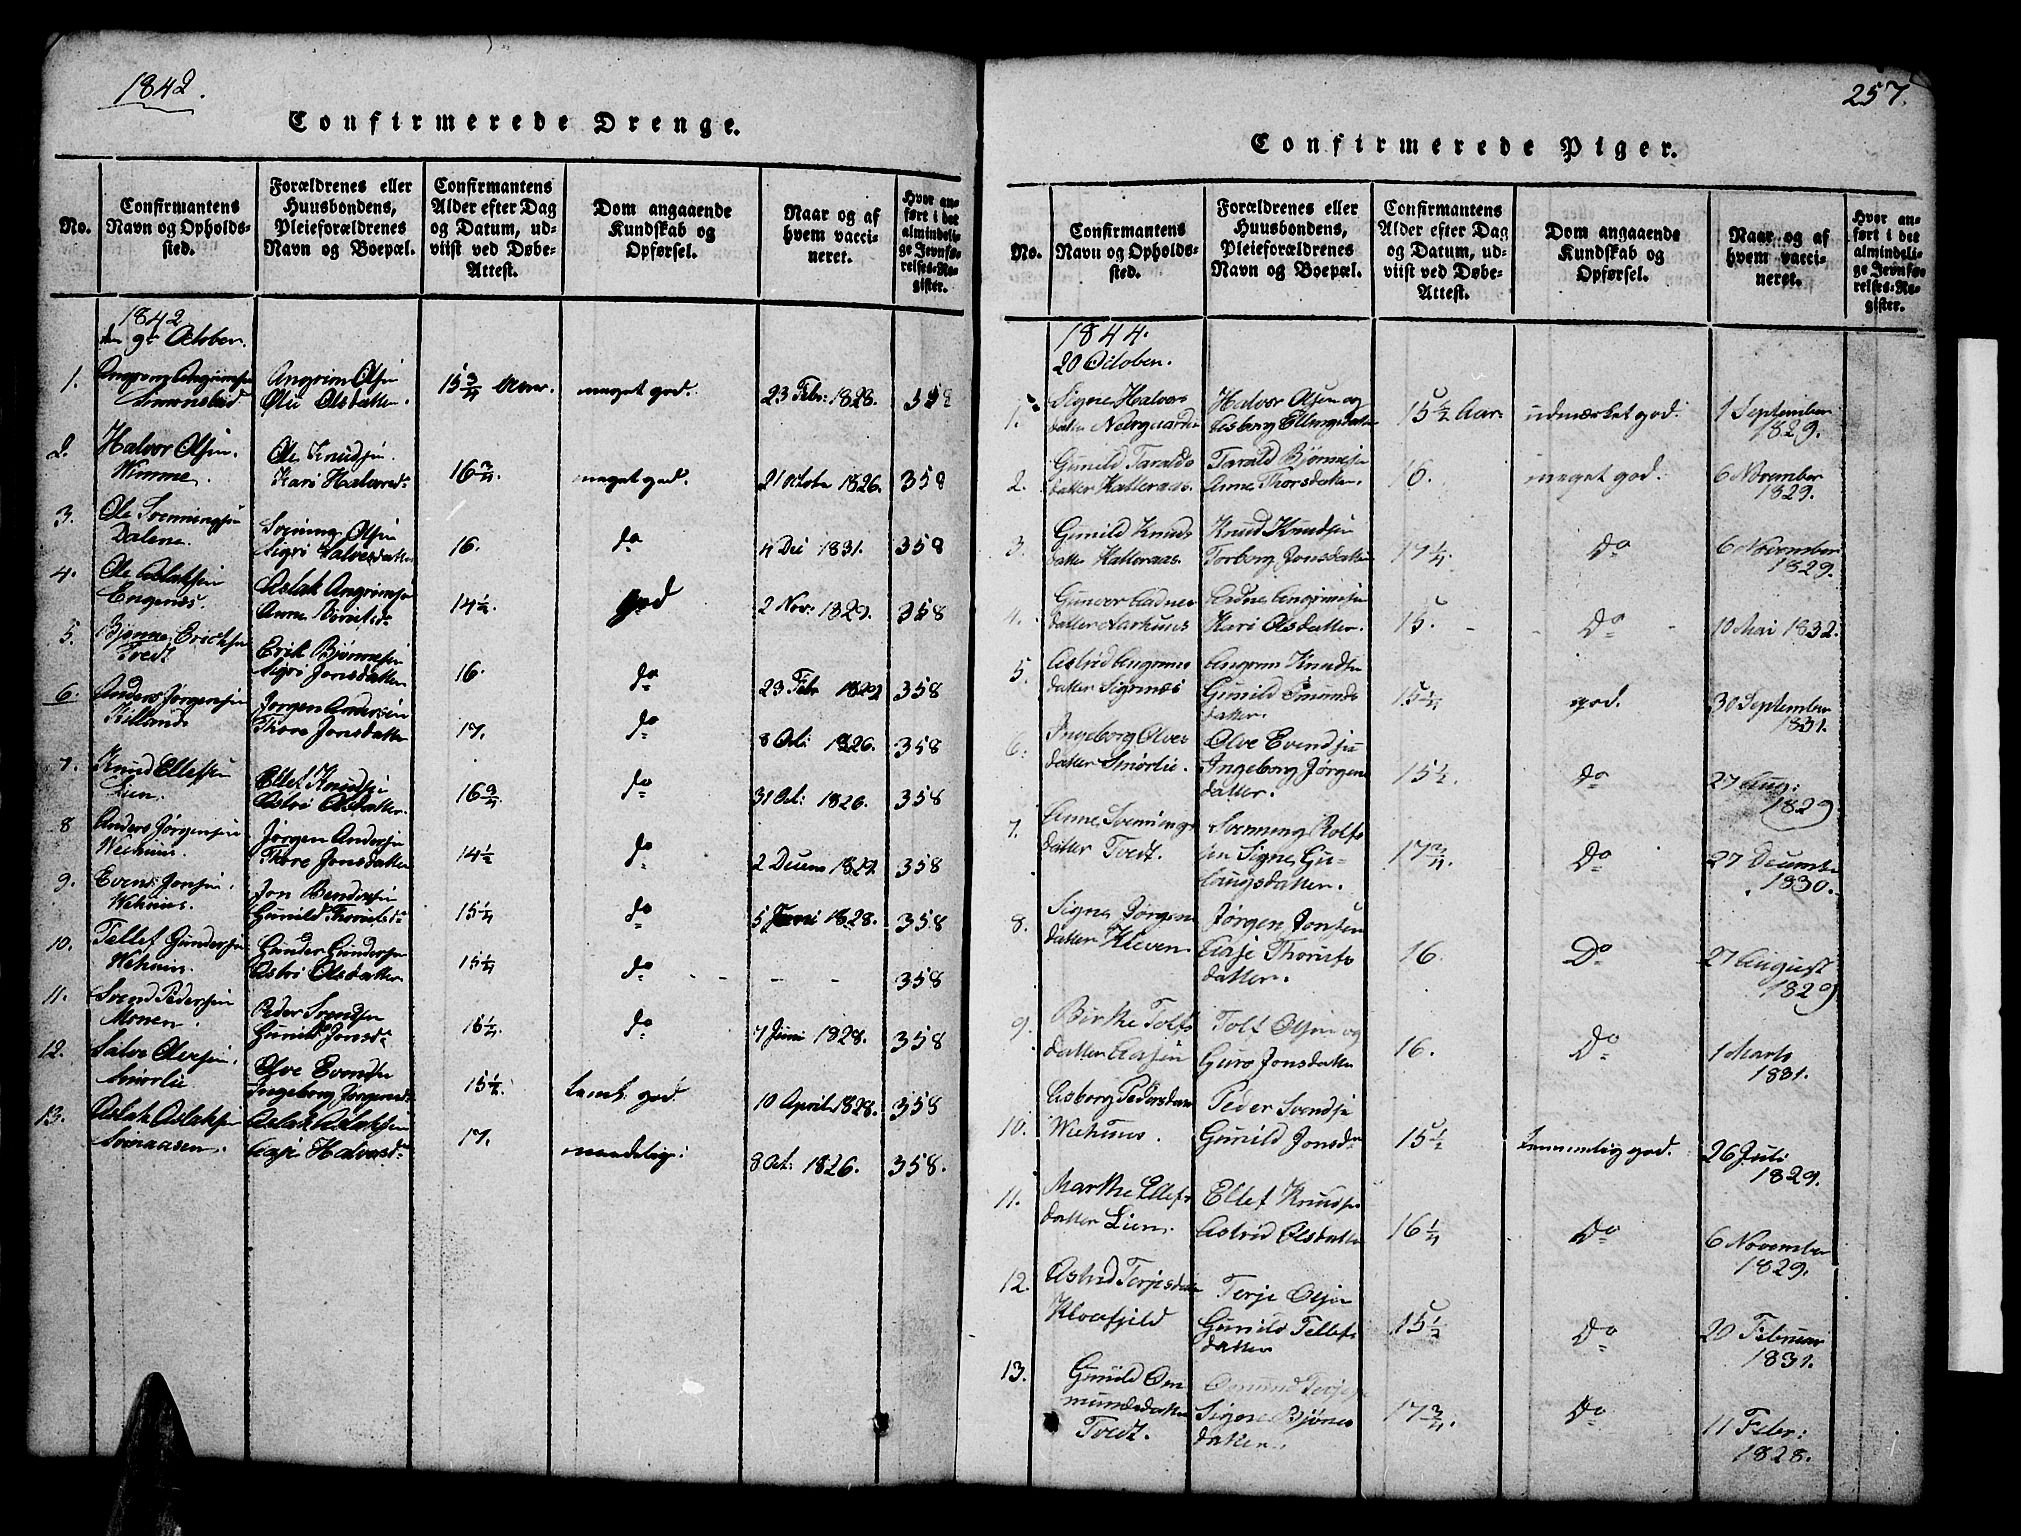 1842.
Confirmerede Drenge.
No.
Confirmantens
Navn og Opholds-
sted.
Forældrenes eller
Huusbondens,
Pleieforældrenes
Navn og Boepæl.
Confirmantens
Alder efter Dag
og Datum, ud-
viist ved Døbe-
Attest.
Dom angaaende
Kundskab og
Opførsel.
Naar og af
hvem vacci-
neret.
Hvor an-
ført i det
almindeli-
ge Jevnfø-
relses-Re-
gister.
1842
den 9de October.
1. Angrimsen
Angrim Olsen
Olsdatter.
15 3/4 Aar.
meget god.
23 Febr: 1828.
358
2. Halvor Olsen.
Wimme.
Ole Knudsen.
Kari Halvorsd.
16 3/4.
meget god.
21 Octobr 1826.
358
3. Ole Svenningsen
Dalene.
Svening Olsen
Sigri Salvesdatter
16.
do
4 Dec 1831.
358
4. Ole Aslaksen
Engenes.
Aslak Angrimsen
Anne
14 1/2.
god
2 Nov: 1829.
358
5. Bjønne Ericksen
Tvedt
Erik Bjønnesen
Sigri Jonsdatter
16.
do
23 Febr
358
6. Anders Jørgensen
Killand.
Jørgen Andersen
Thore Jonsdatter
17.
do
8 Oct: 1826.
358
7. Knud Ellefsen
Lien.
Ellef Knudsen
Astri Olsdatter.
16 3/4
do
31 Oct: 1826.
358
8 Anders Jørgensen
Wehuus.
Jørgen Andersen
Thore Jonsdatter
14 1/2
do
2 Decem 1829.
358
9. Even Jonsen.
Wehuus.
Jon Bendixsen
Gunild
15 1/4
do
5 Juni 1828.
358
10. Tellef Gundersen
Wehuus.
Gunder Gundersen
Astri Olsdatter
15 1/4
do
- - -
358
11. Svend Pedersen
Monen.
Peder Svendsen
Gunild Jonsd.
15 1/4.
do
7 Juni 1828.
358
12. Salve Olvesen.
Smørlie
Olve Evendsen
Ingeborg Jørgensd.
15 1/2.
teml. god.
10 April 1828.
358
13. Aslak Aslaksen
Aslak Aslaksen
Aasje Halvorsd.
17.
maadelig.
8 Oct: 1826.
358.
257.
Confirmerede Piger.
No.
Confirmantens
Navn og Opholds-
sted.
Forældrenes eller
Huusbondens,
Pleieforældrenes
Navn og Boepæl.
Confirmantens
Alder efter Dag
og Datum, ud-
viist ved Døbe-
Attest.
Dom angaaende
Kundskab og
Opførsel.
Naar og af
hvem vacci-
neret.
Hvor an-
ført i det
almindeli-
ge Jevnfø-
relses-Re-
gister.
1844.
20 October.
1. Signe Halvors
datter
Halvor Olsen og
Ellingsdatter
15 1/2 Aar.
udmærket god.
1 September
1829.
2. Gunild Taralds
datter Hatteraas.
Tarald Bjønnesen
Anne Thorsdatter.
16.
meget god.
6 November
1829.
3. Gunild Knuds
datter Hatteraas.
Knud Knudsen
Torborg Jonsdatter
17 1/4.
Do
6 November
1829.
4. Gunvor Aadnes
datter Aarhuus
Aadne Angrimsen
Kari Olsdatter.
15. -
Do
10 Mai 1832.
5. Astrid Angrims
datter Sigenæs
Angrim Knudsen
Gunild Omunds
datter.
15 1/4
god.
30 September
1831.
6. Ingeborg Olves
datter Smørlie.
Olve Evendsen
Ingeborg Jørgens
datter.
15 1/2.
Do
27 Aug:
1829
7. Anne Svennings
datter Tvedt.
Svenning Rolfs
sen Signe Gu-
laugsdatter.
17 3/4.
Do
27 Decembr
1830.
8. Signe Jørgens
datter Kleven.
Jørgen Jonsen
Aasje
datter.
16.
Do
27 August
1829
9. Birthe Tolfs
datter
Tolf Olsen og
Guro Jonsdatter
16.
Do
1 Marts
1831.
10. Asborg Pedersdatter
Wehuus.
Peder Svendsen
Gunild Jonsd.
15 1/2
temmelig god.
26 Juli
1829.
11. Marthe Ellefs
datter Lien.
Ellef Knudsen
Astrid Olsdatter
16 1/4
Do
6 November
1829.
12. Astrid Terjesdatter
Terje Olsen
Gunild Tellefs
datter
15 1/2
Do
20 Februar
1831.
13. Gunild Om
mundsdatter
Tvedt.
Omund Terjesen
Signe Bjønes
datter.
17 3/4.
Do
11 Febr:
1828.